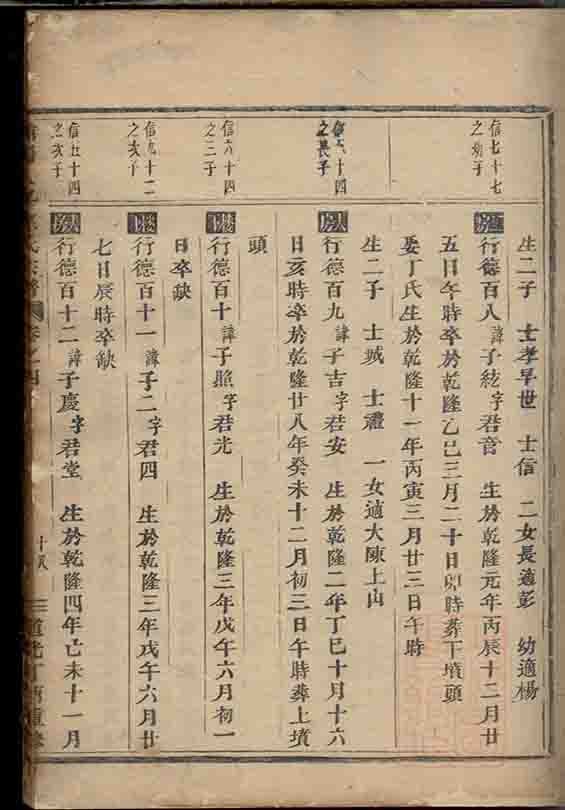 生二子 士孝早世 士信 二女長適彭 幼適楊
信七十七
之幼子
行德百八諱子絃字君音 生於乾隆元年丙辰十二月廿
五日午時卒於乾隆乙巳三月二十日卯時葬下墳頭
娶丁氏生於乾隆十一年丙寅三月廿三日午時
生二子 士城 士禮 一女適大陳上山
信六十四
之長子
行德百九諱子吉字君安 生於乾隆二年丁巳十月十六
日亥時卒於乾隆廿八年癸未十二月初三日午時葬上墳
頭
信六十四
之三子
行德百十諱子照字君光 生於乾隆三年戊午六月初一
日卒缺
信九十二
之次子
行德百十一諱子二字君四 生於乾隆三年戊午六月廿
七日辰時卒缺
信五十四
之次子
行德百十二諱子慶字君堂 生於乾隆四年己未十一月
氏宗譜 卷之四 十八 道光丁酉重修